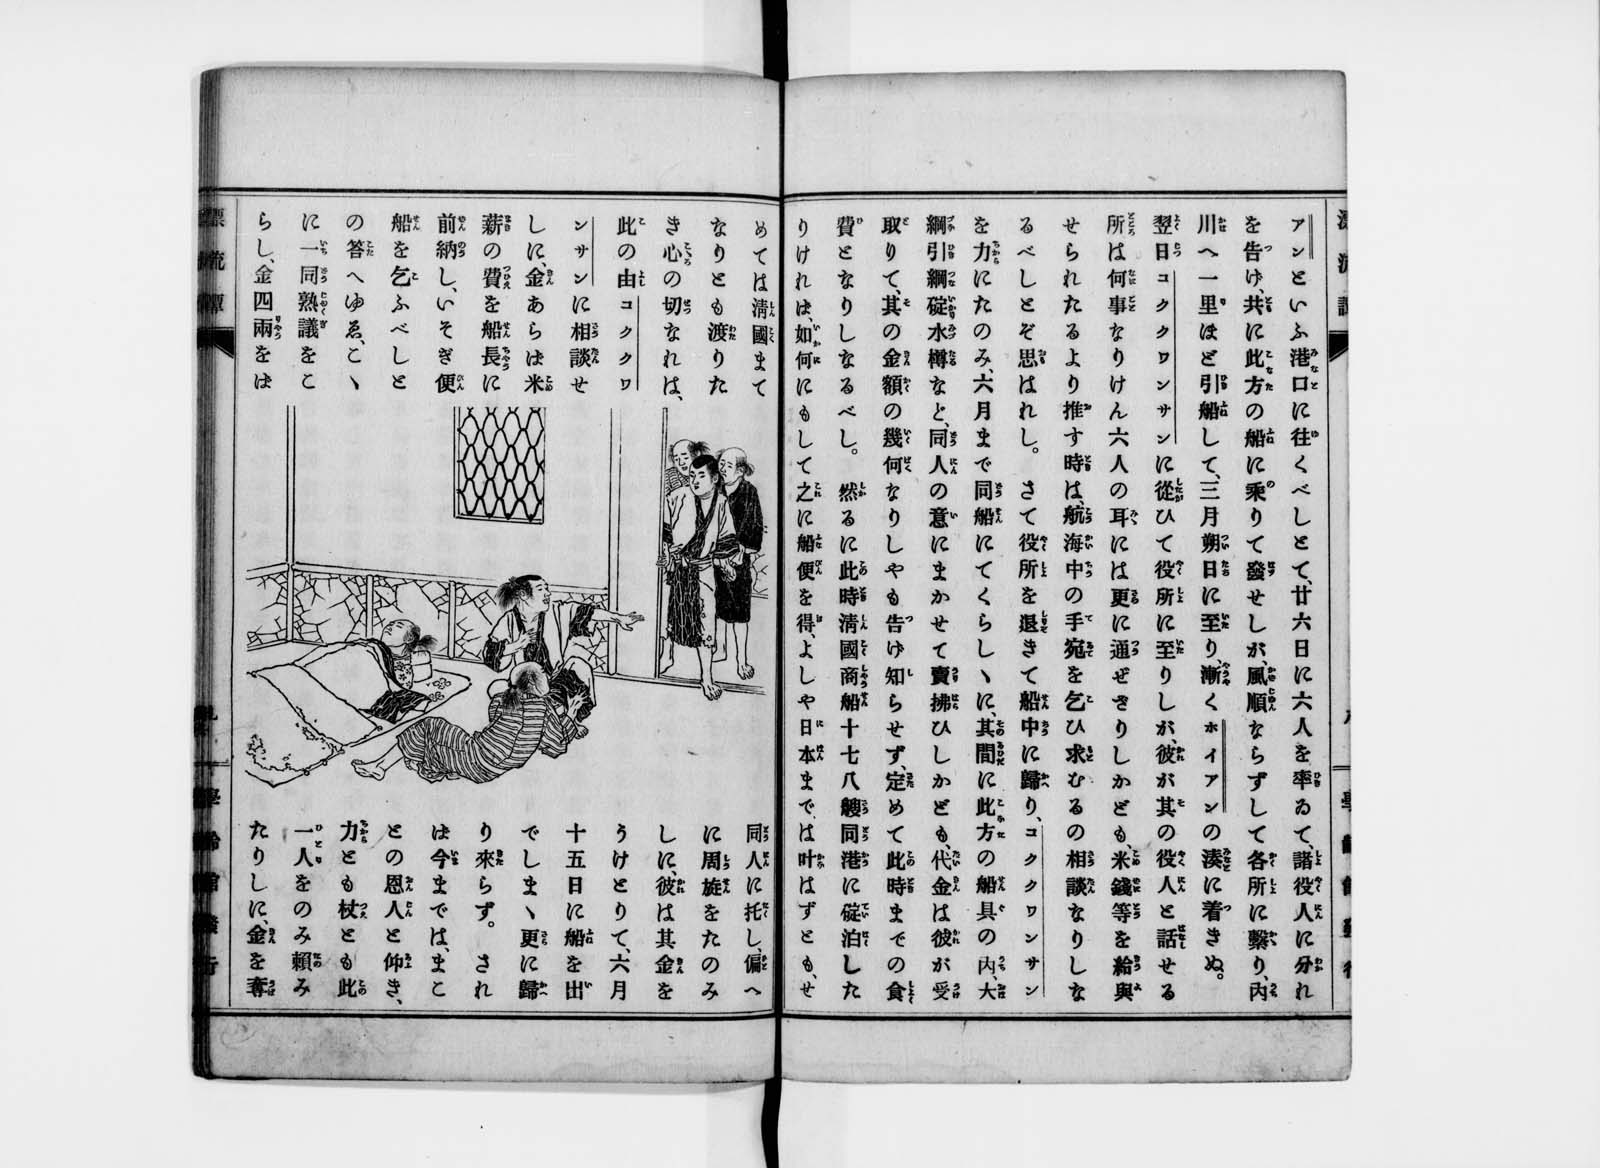 アンといふ港口に往くべしとて、廿六日に六人を率ゐて、諸役人に分れ
を告げ、共に此方の船に乘りて發せしが、風順ならずして各所に繋り、内
川へ一里ほど引船して、三月朔日に至り、漸くホイアンの湊に着きぬ。
翌日コククワンサンに從ひて役所に至りしが、彼が其の役人と話せる
所は何事なりけん六人の耳には更に通ぜざりしかども、米錢等を給與
せられたるより推す時は、航海中の手宛を乞ひ求むるの相談なりしな
るべしとぞ思はれし。さて役所を退きて船中に歸り、コククワンサン
を力にたのみ、六月まで同船にてくらしゝに、其間に此方の船具の内、大
綱引綱碇水樽など、同人の意にまかせて賣拂ひしかども、代金は彼が受
取りて、其の金額の幾何なりしやも告げ知らせず、定めて此時までの食
費となりしなるべし。然るに此時淸國商船十七八艘同港に碇泊した
りければ、如何にもして之に船便を得、よしや日本までは叶はずとも、せ
漂流譚
めては淸國まて
なりとも渡りた
き心の切なれは、
此の由コククワ
ンサンに相談せ
しに、金あらは米
薪の費を船長に
前納し、いそぎ便
船を乞ふべしと
の答へゆゑ、こゝ
に一同熟議をこ
らし、金四兩をは
同人に托し、偏へ
に周旋をたのみ
しに、彼は其金を
うけとりて、六月
十五日に船を出
でしまゝ更に歸
り來らず。され
は今までは、まこ
との恩人と仰き、
力とも杖とも此
一人をのみ賴み
たりしに、金を奪
漂流譚
學齡館發行